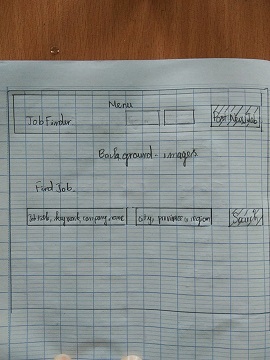 Menu
Job Finder
Post New Job
Background - images
Find Job.
Job title, keyword, company name
City, province or region
Search